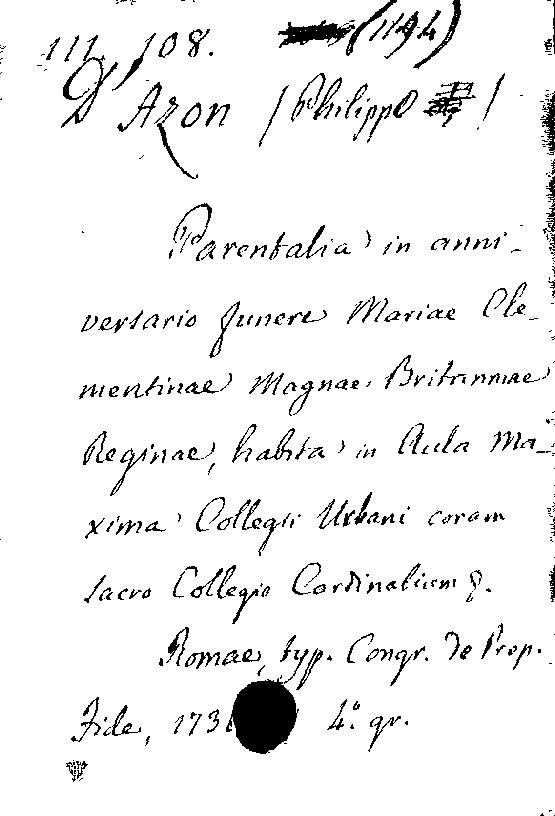 111. 108. (1194)
D'Azon (Philippo)
Parentalia in anni-
versario funere Mariae Cle-
mentinae Magnae Britanniae
Reginae, habita in Aula Ma-
xima Collegii Urbani coram
sacro Collegio Cardinalium
Romae, typ. Congr. de Prop.
Fide, 173 4.º gr.